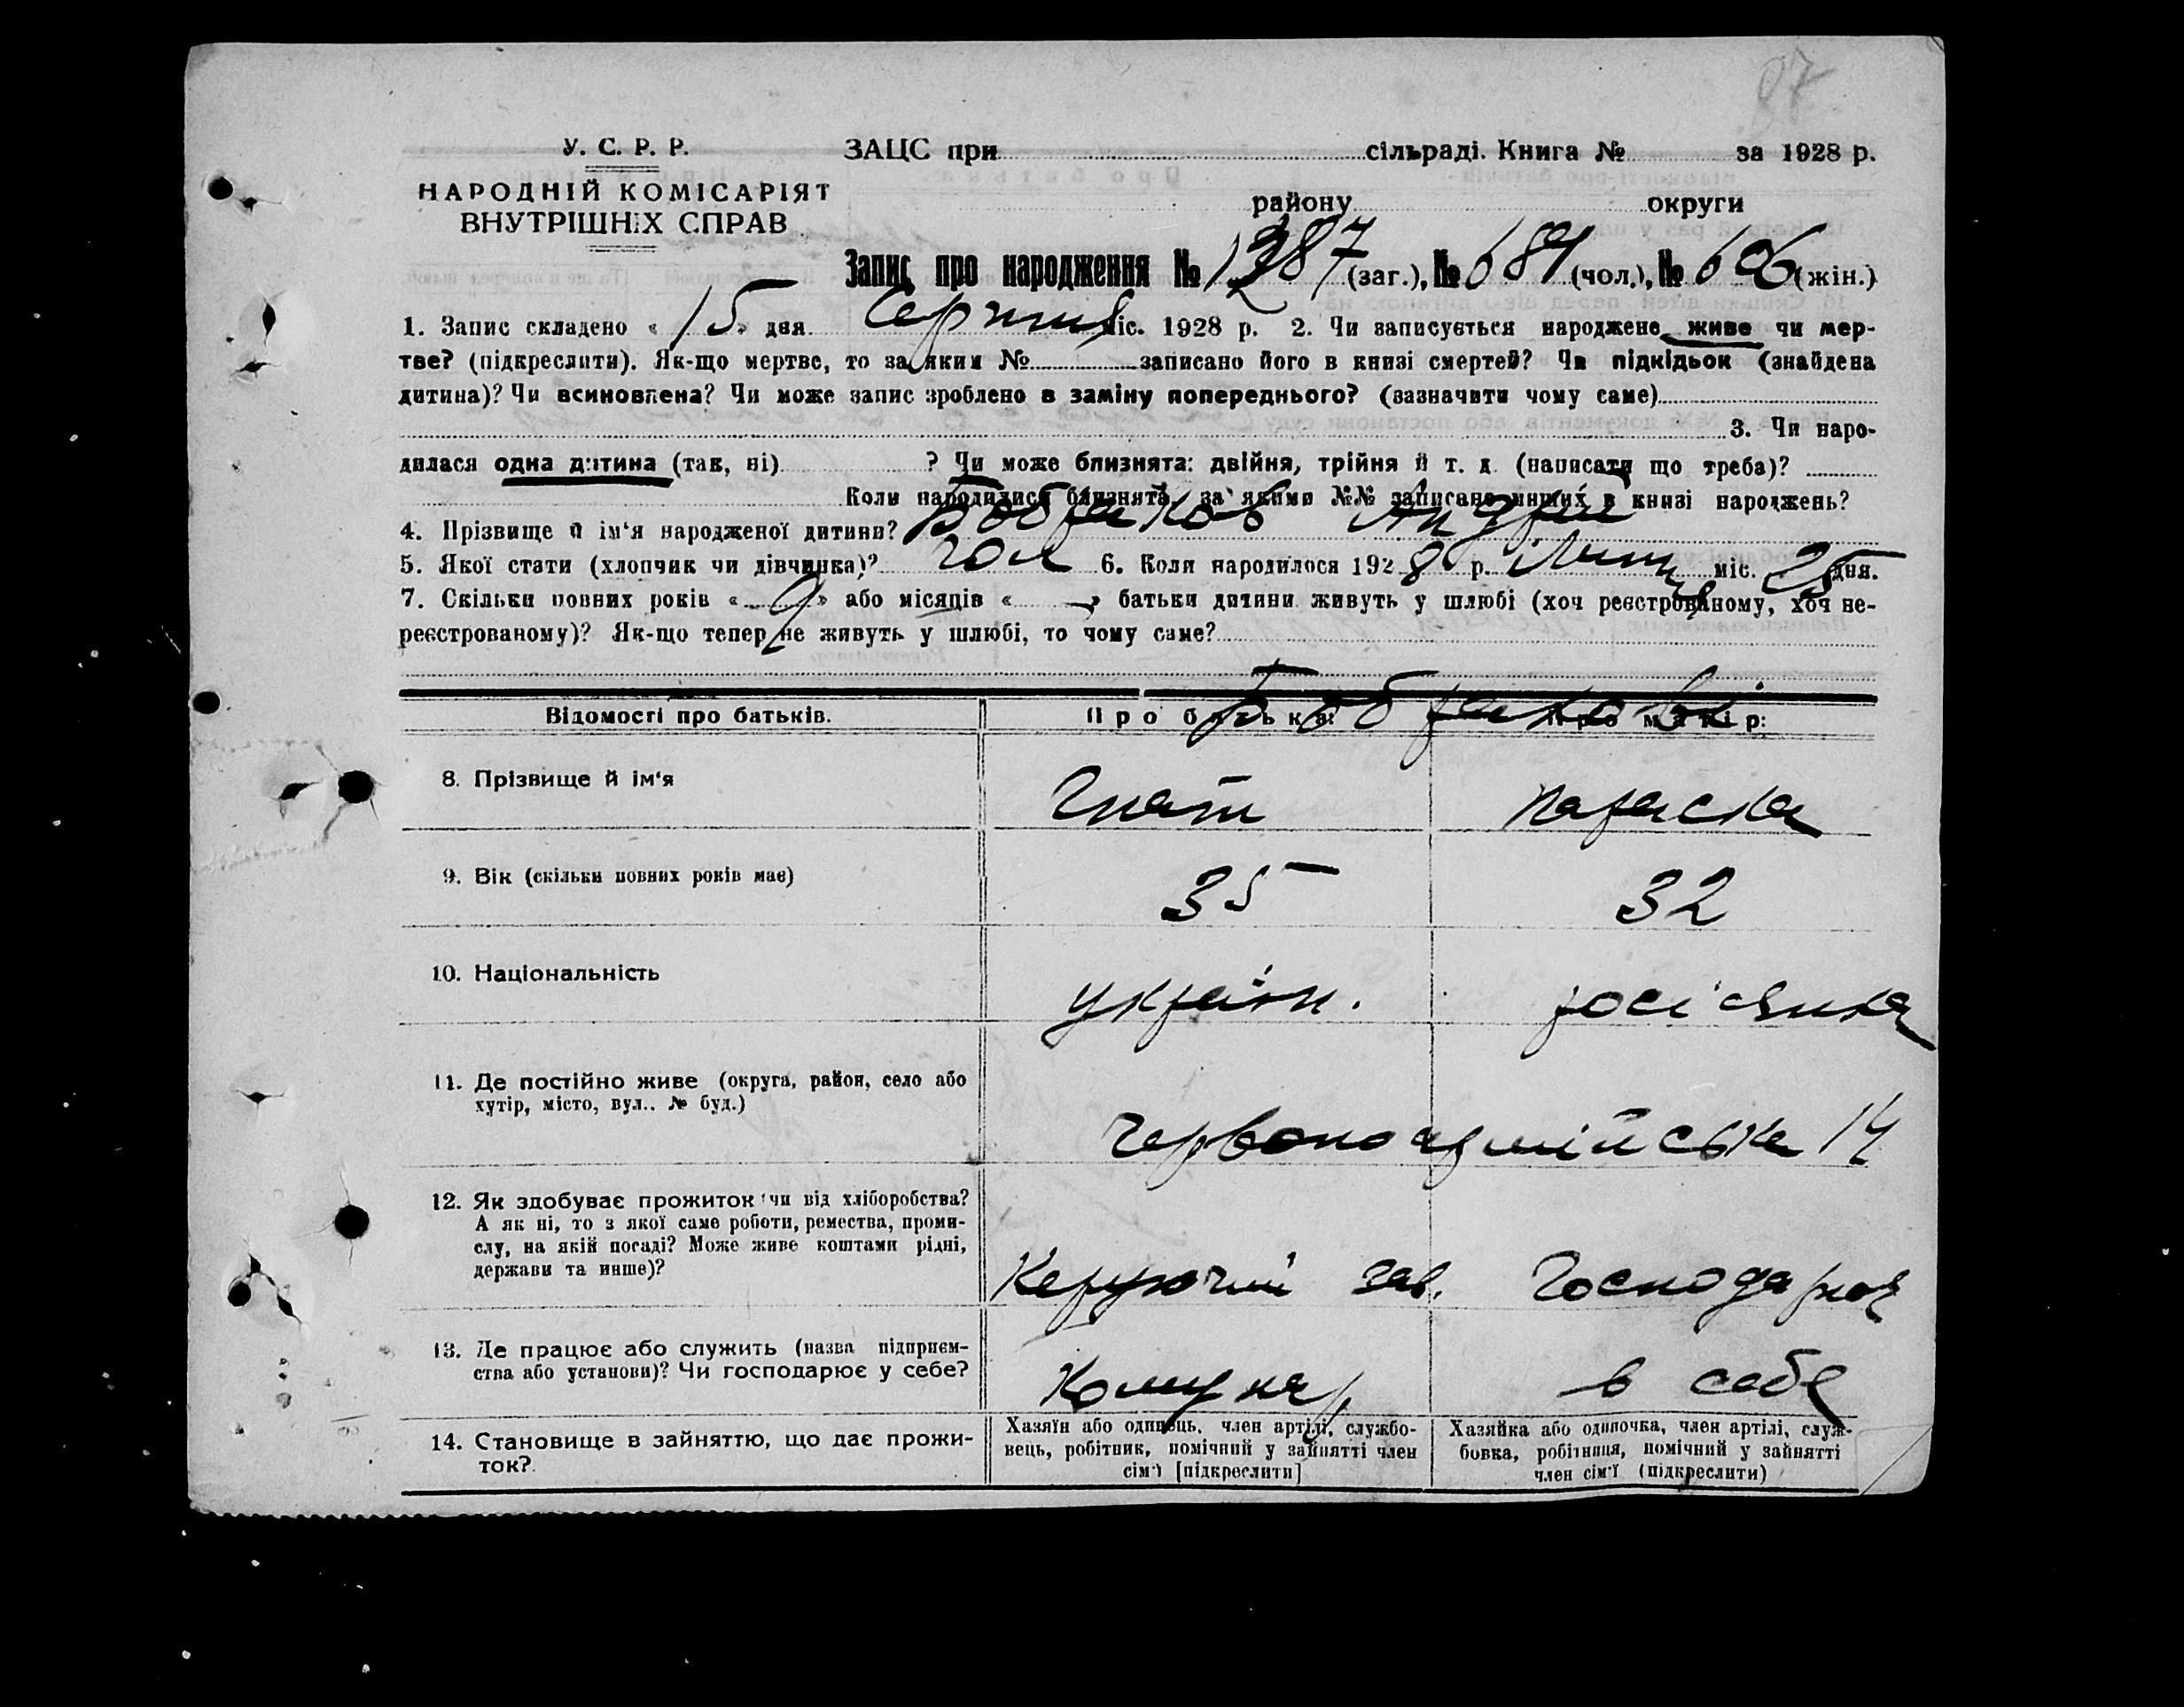 87
У. С. Р. Р.
НАРОДНІЙ КОМІСАРІЯТ
ВНУТРІШНІХ СПРАВ
ЗАЦС при сільраді. Книга № за 1928 р.
району округи
Запис про народження № 1287 (заг.), № 681 (чол.), № 606 (жін.)
1. Запис складено « 15 » дня Серпня міс. 1928 р. 2. Чи записується народжене живе чи мер-
тве? (підкреслити). Як-що мертве, то за яким № записано його в книзі смертей? Чи підкідьок (знайдена
дитина)? Чи всиновлена? Чи може запис зроблено в заміну попереднього? (зазначити чому саме)
3. Чи наро-
дилася одна дитина (так, ні) ? Чи може близнята: двійня, трійня й т. д. (написати що треба)?
Коли народилися близнята, за якими №№ записано инших в книзі народжень?
4. Прізвище й ім‘я народженої дитини? Бобраков Андрій
5. Якої стати (хлопчик чи дівчинка)? чол 6. Коли народилося 1928 р. Липня міс. 25 дня.
7. Скільки повних років « 9 » або місяців « — » батьки дитини живуть у шлюбі (хоч реєстрованому, хоч не-
реєстрованому)? Як-що тепер не живуть у шлюбі, то чому саме?
Відомості про батьків. Про батька: Про матір:
Бобракови
8. Прізвище й ім‘я Гнат Параска
9. Вік (скільки повних років має) 35 32
10. Національність україн. росіянка
11. Де постійно живе (округа, район, село або
хутір, місто, вул.. № буд.)
Червоноармійська 14
12. Як здобуває прожиток (чи від хліборобства?
А як ні, то з якої саме роботи, ремества, проми-
слу, на якій посаді? Може живе коштами рідні,
держави та инше)?
Керуючий зав. Господарює
13. Де працює або служить (назва підприєм-
ства або установи)? Чи господарює у себе?
Комунар в себе
14. Становище в зайняттю, що дає прожи-
ток?
Хазяїн або одинець, член артілі, службо-
вець, робітник, помічний у зайнятті член
сім'ї [підкреслити]
Хазяйка або одиночка, член артілі, служ-
бовка, робітниця, помічний у зайнятті
член сім'ї (підкреслити)